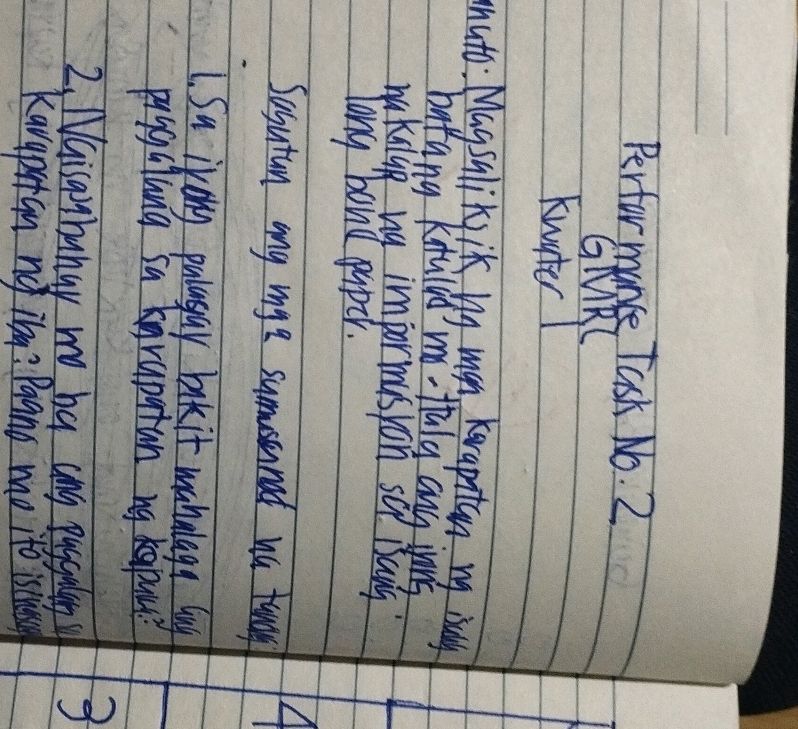 Performance Task No. 2
GMRC
Kwarter 1
anuto: Magsaliksik ng mga karapatan ng isang
batang katulad mo. Itala ang iyong
nakalap ng impormasyon sa isang
long bond paper.
Sagutan ang mga sumusunod na tanong
1. Sa iyong palagay bakit mahalaga ang
paggalang sa karapatan ng kapuwa?
2. Naisabuhay mo ba ang paggalang s
karapatan ng iba? Paano mo ito
3
4